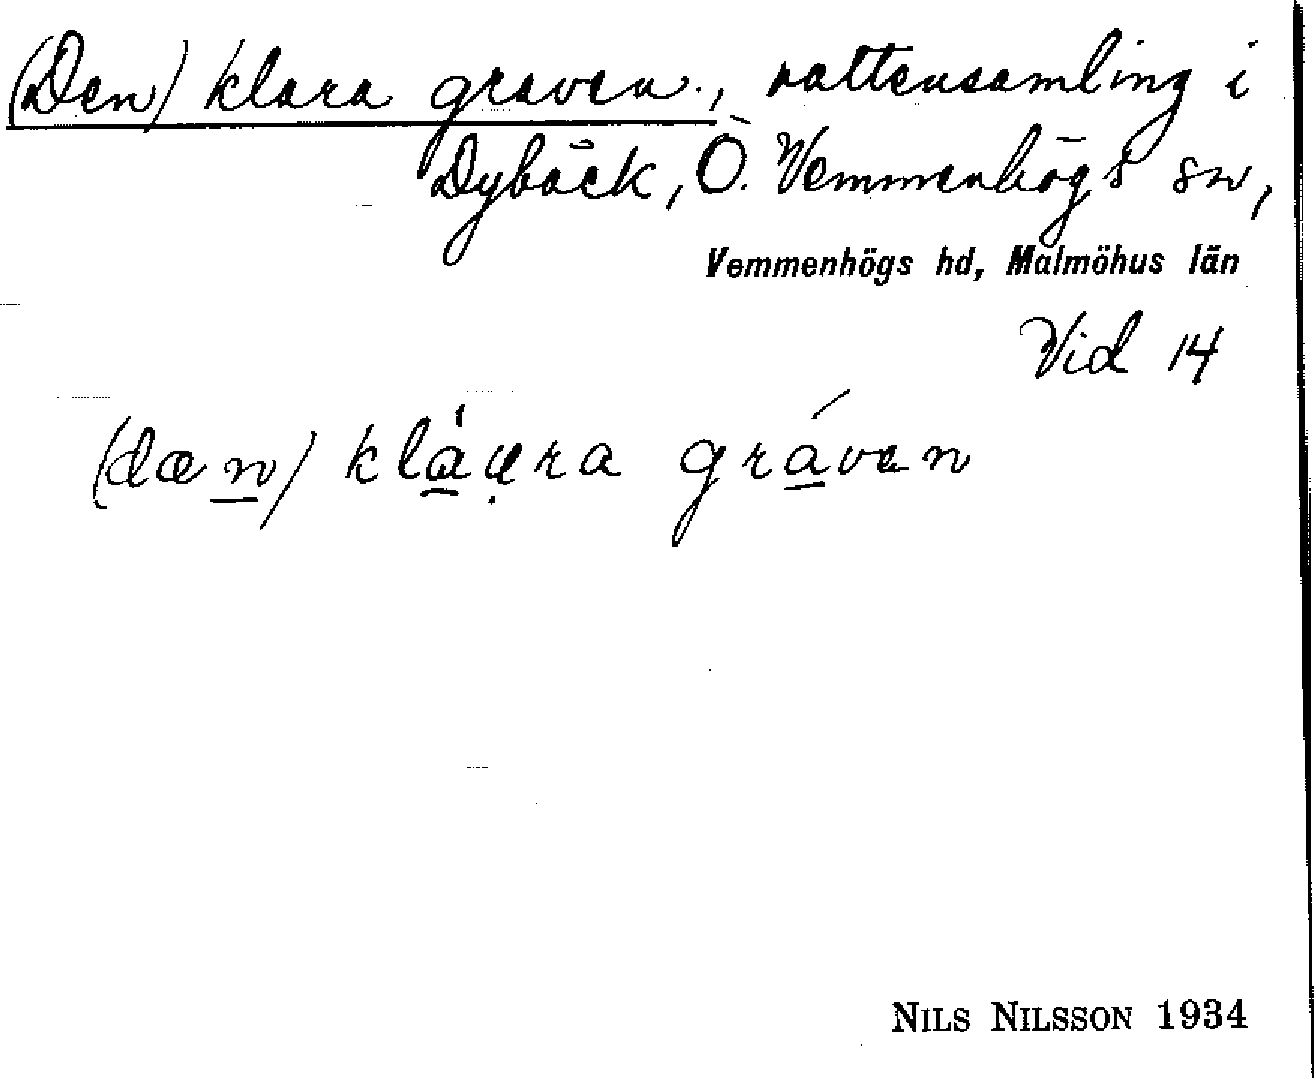 (Den) klara graven., vattensamling i
Dybäck, Ö. Vemmenhögs sn,
Vemmenhögs hd, Malmöhus län
Vid 14
(dæn) kláųra gráven
NILS NILSSON 1934